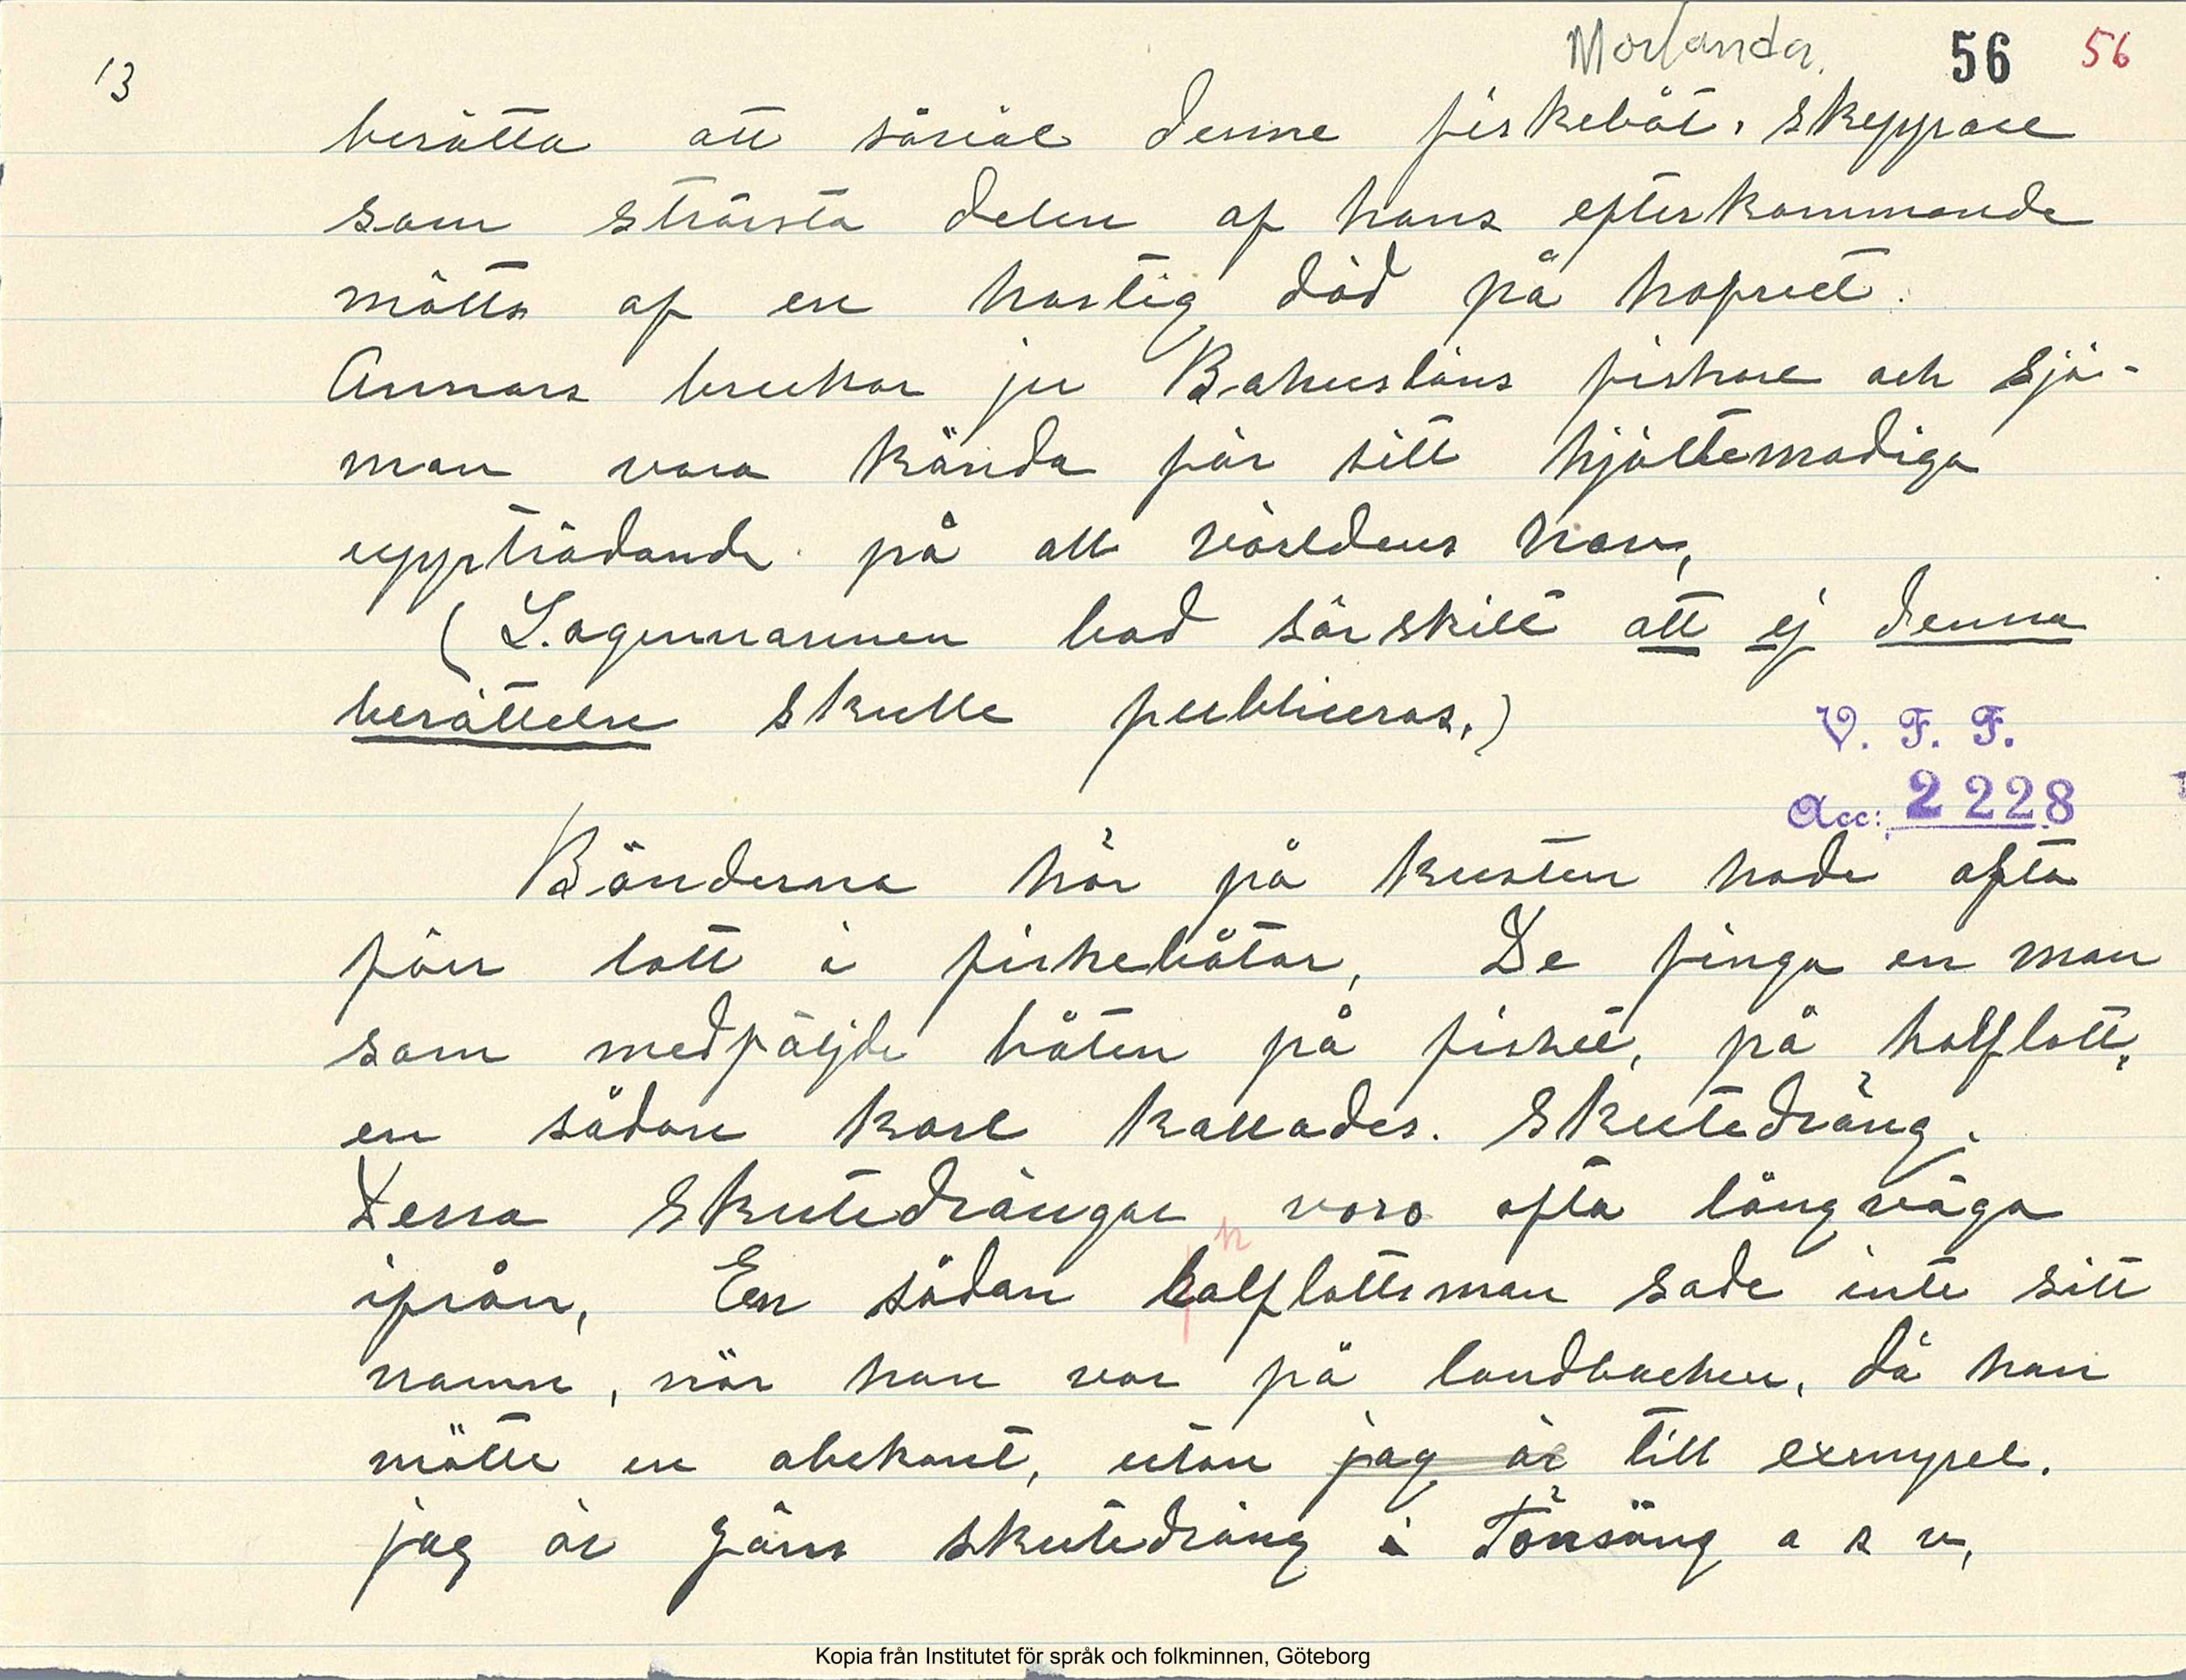 13
Morlanda. 56 56
berätta att såväl denne fiskebåt, skeppare
som största delen af hans efterkommande
mötts af en hastig död på hafvet.
Annars bruka ju Bahusläns fiskare och sjö-
män vara kända för sitt hjältemodiga
uppträdande på all världens hav,
(Lagermannen bad särskilt att ej denna
berättelse skulle publiceras.)
V. F. F.
Acc: 2228
Bönderna här på kusten hade ofta
förr lott i fiskebåtar, De finga en man
som medföljde båten på fisket, på halflott,
en sådan karl kallades. Skutedräng.
Dessa Skutedrängar voro ofta långväga
ifrån, En sådan halflottsman sade inte sitt
namn, när han var på landbacken, då han
mötte en obekant, utan jag är till exempel.
jag är Jöns skutedräng i Tönsäng o s v,
Kopia från Institutet för språk och folkminnen, Göteborg